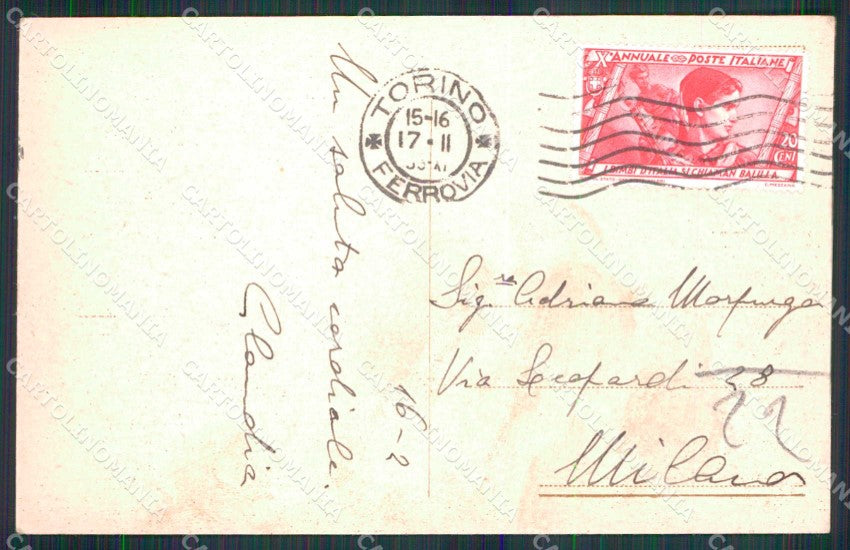 Un saluto cordiale.
Claudia
16-2
TORINO
15-16
17·II
FERROVIA
X° ANNUALE POSTE ITALIANE
20
CENT
I BIMBI D'ITALIA SI CHIAMAN BALILLA
Sig.re Adriano Morpurgo
Via Leopardi 28
22
Milano
CARTOLINOMANIA